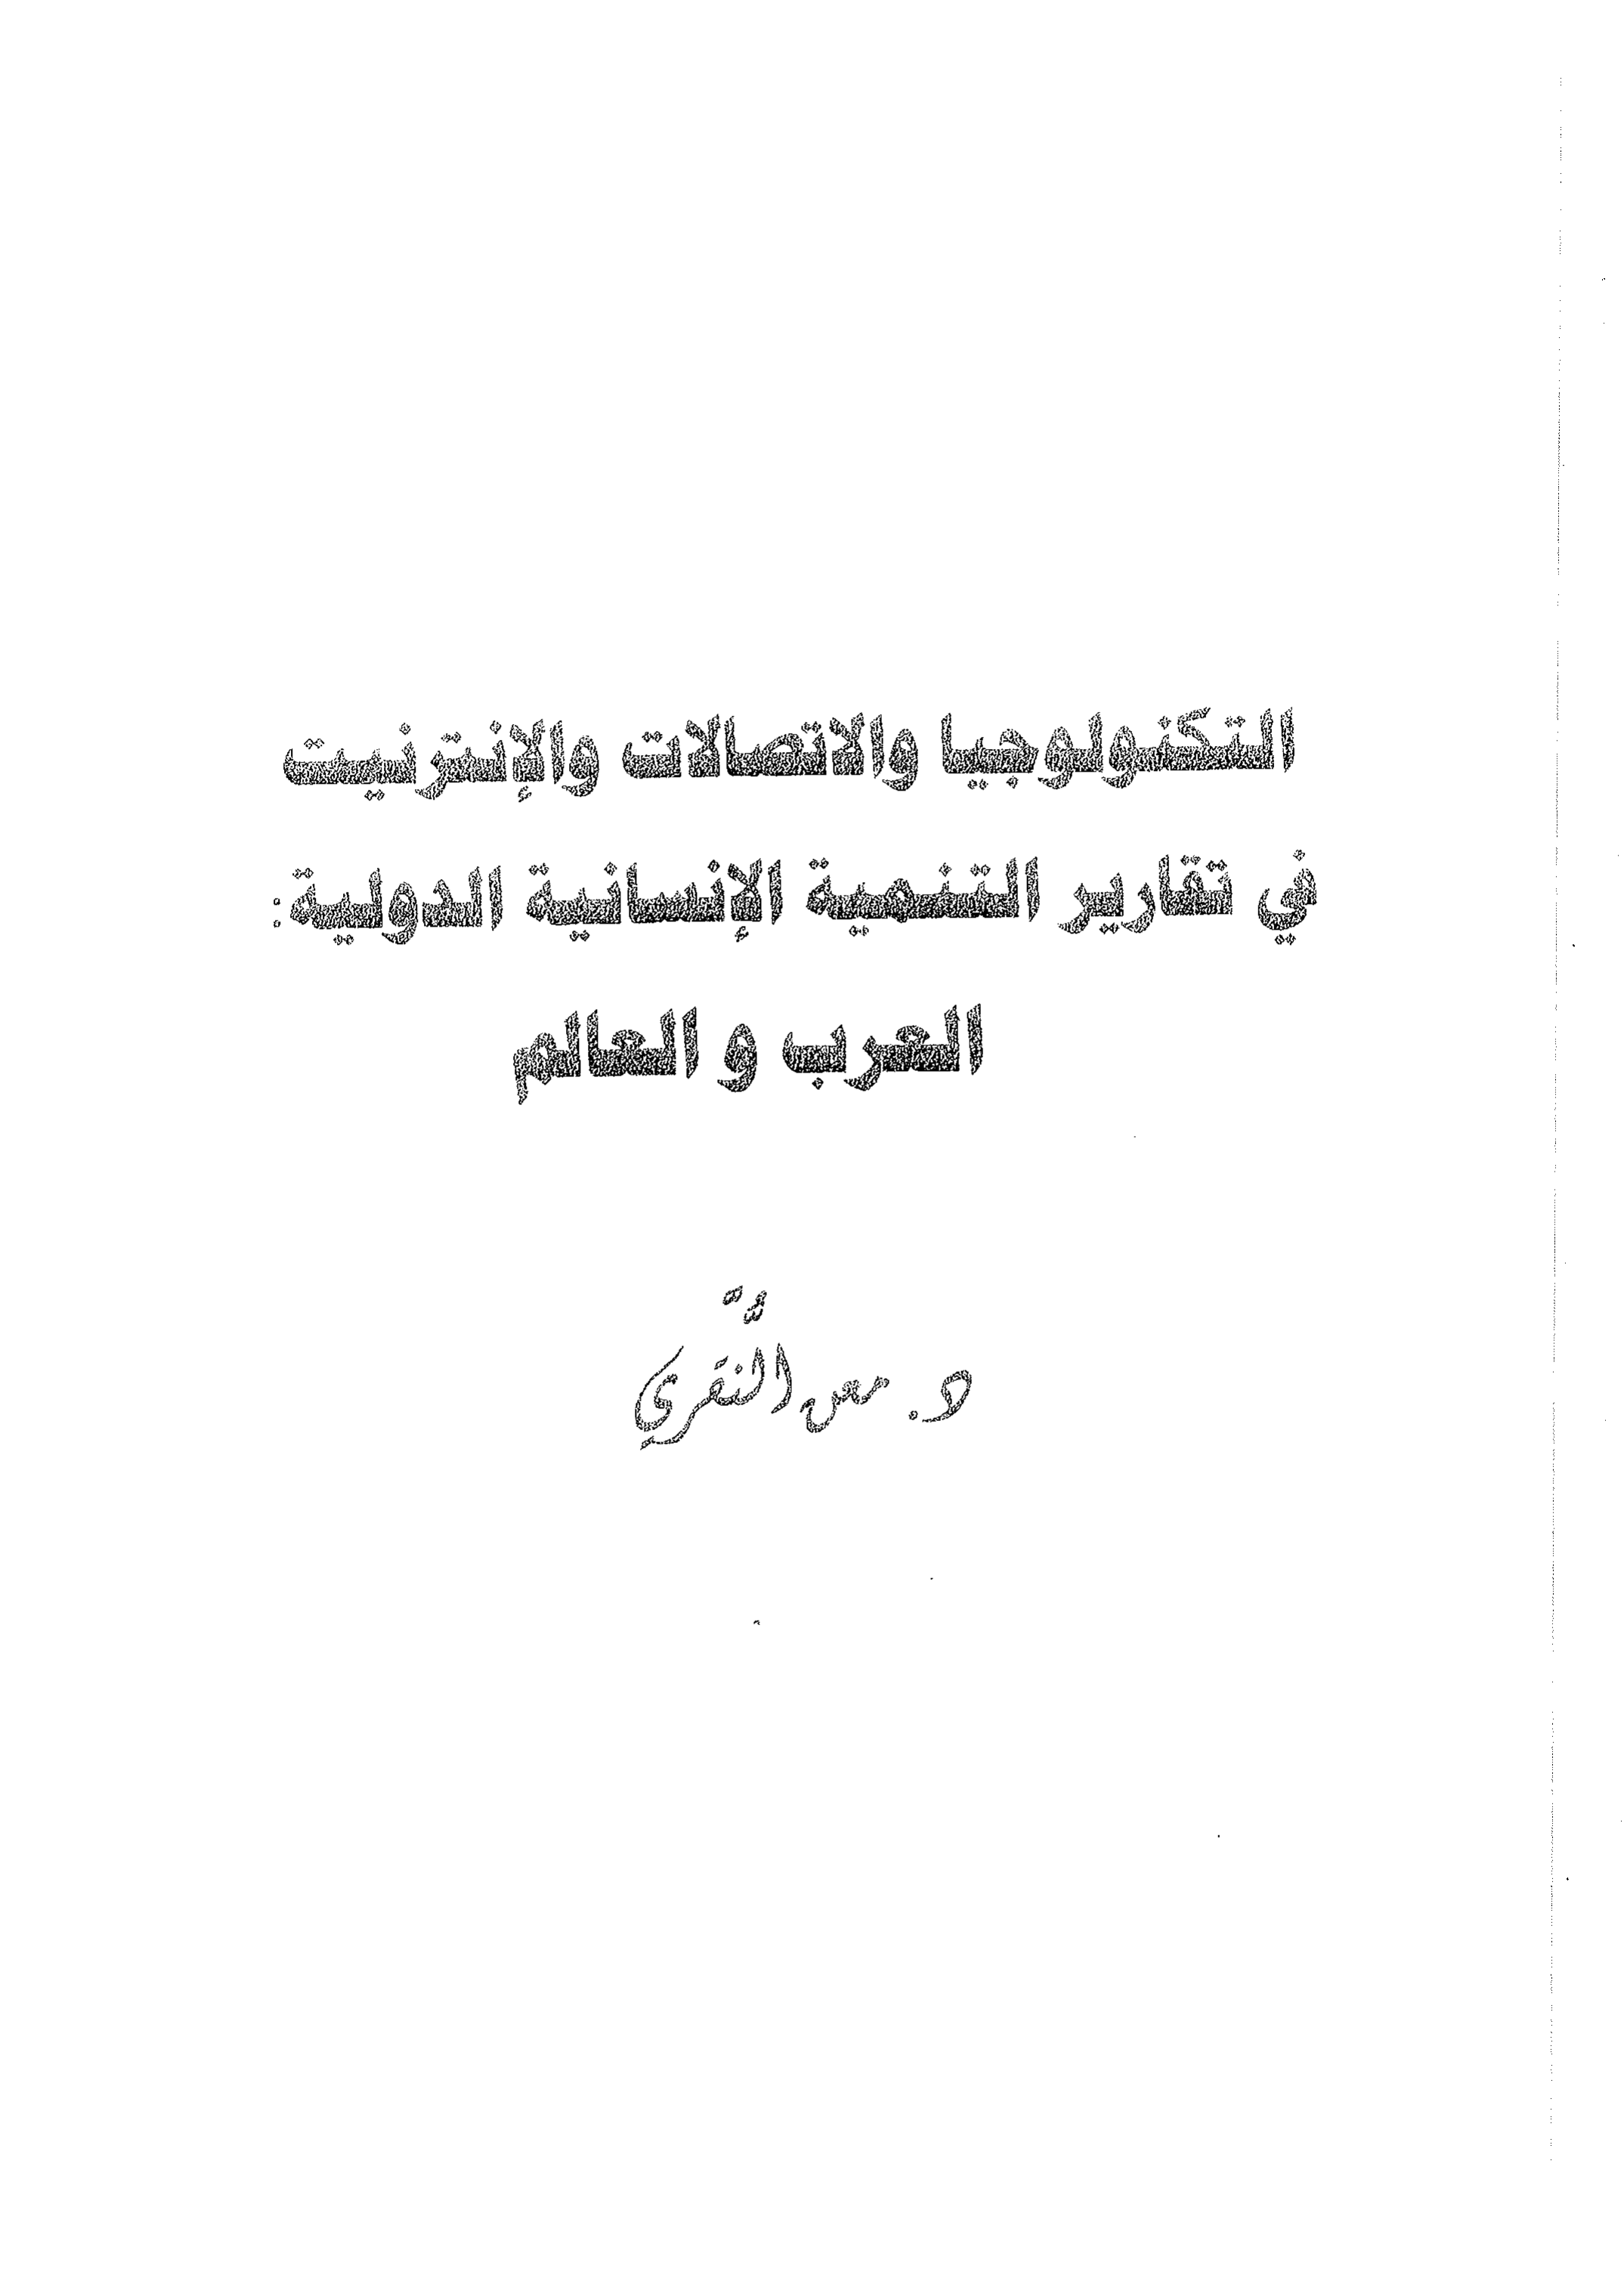 التكنولوجيا والاتصالات والإنترنيت
في تقارير التنمية الإنسانية الدولية:
العرب و العالم
د. معن النقري